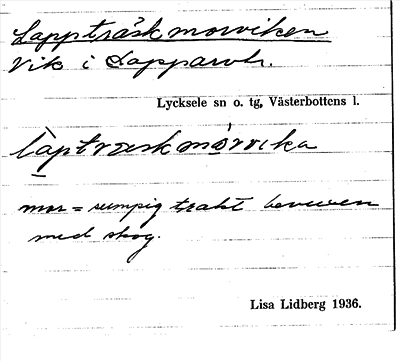 Lappträskmorviken
Vik i Lappavtr.
Lycksele sn o. tg, Västerbottens l.
làptræskmórvika
mor = sumpig trakt bevuxen
med skog.
Lisa Lidberg 1936.